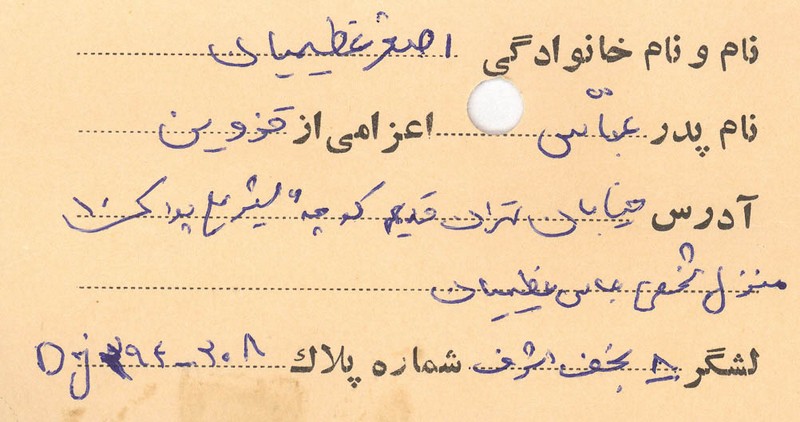 نام و نام خانوادگی اصغر عظیمیان
نام پدر عباس اعزامی از قزوین
آدرس خیابان تهران قدیم کوچه پلاک ۱۰
منزل شخصی عباس عظیمیان
لشگر ۸ نجف اشرف شماره پلاك ۳۰۸-۲۹۴ Dj